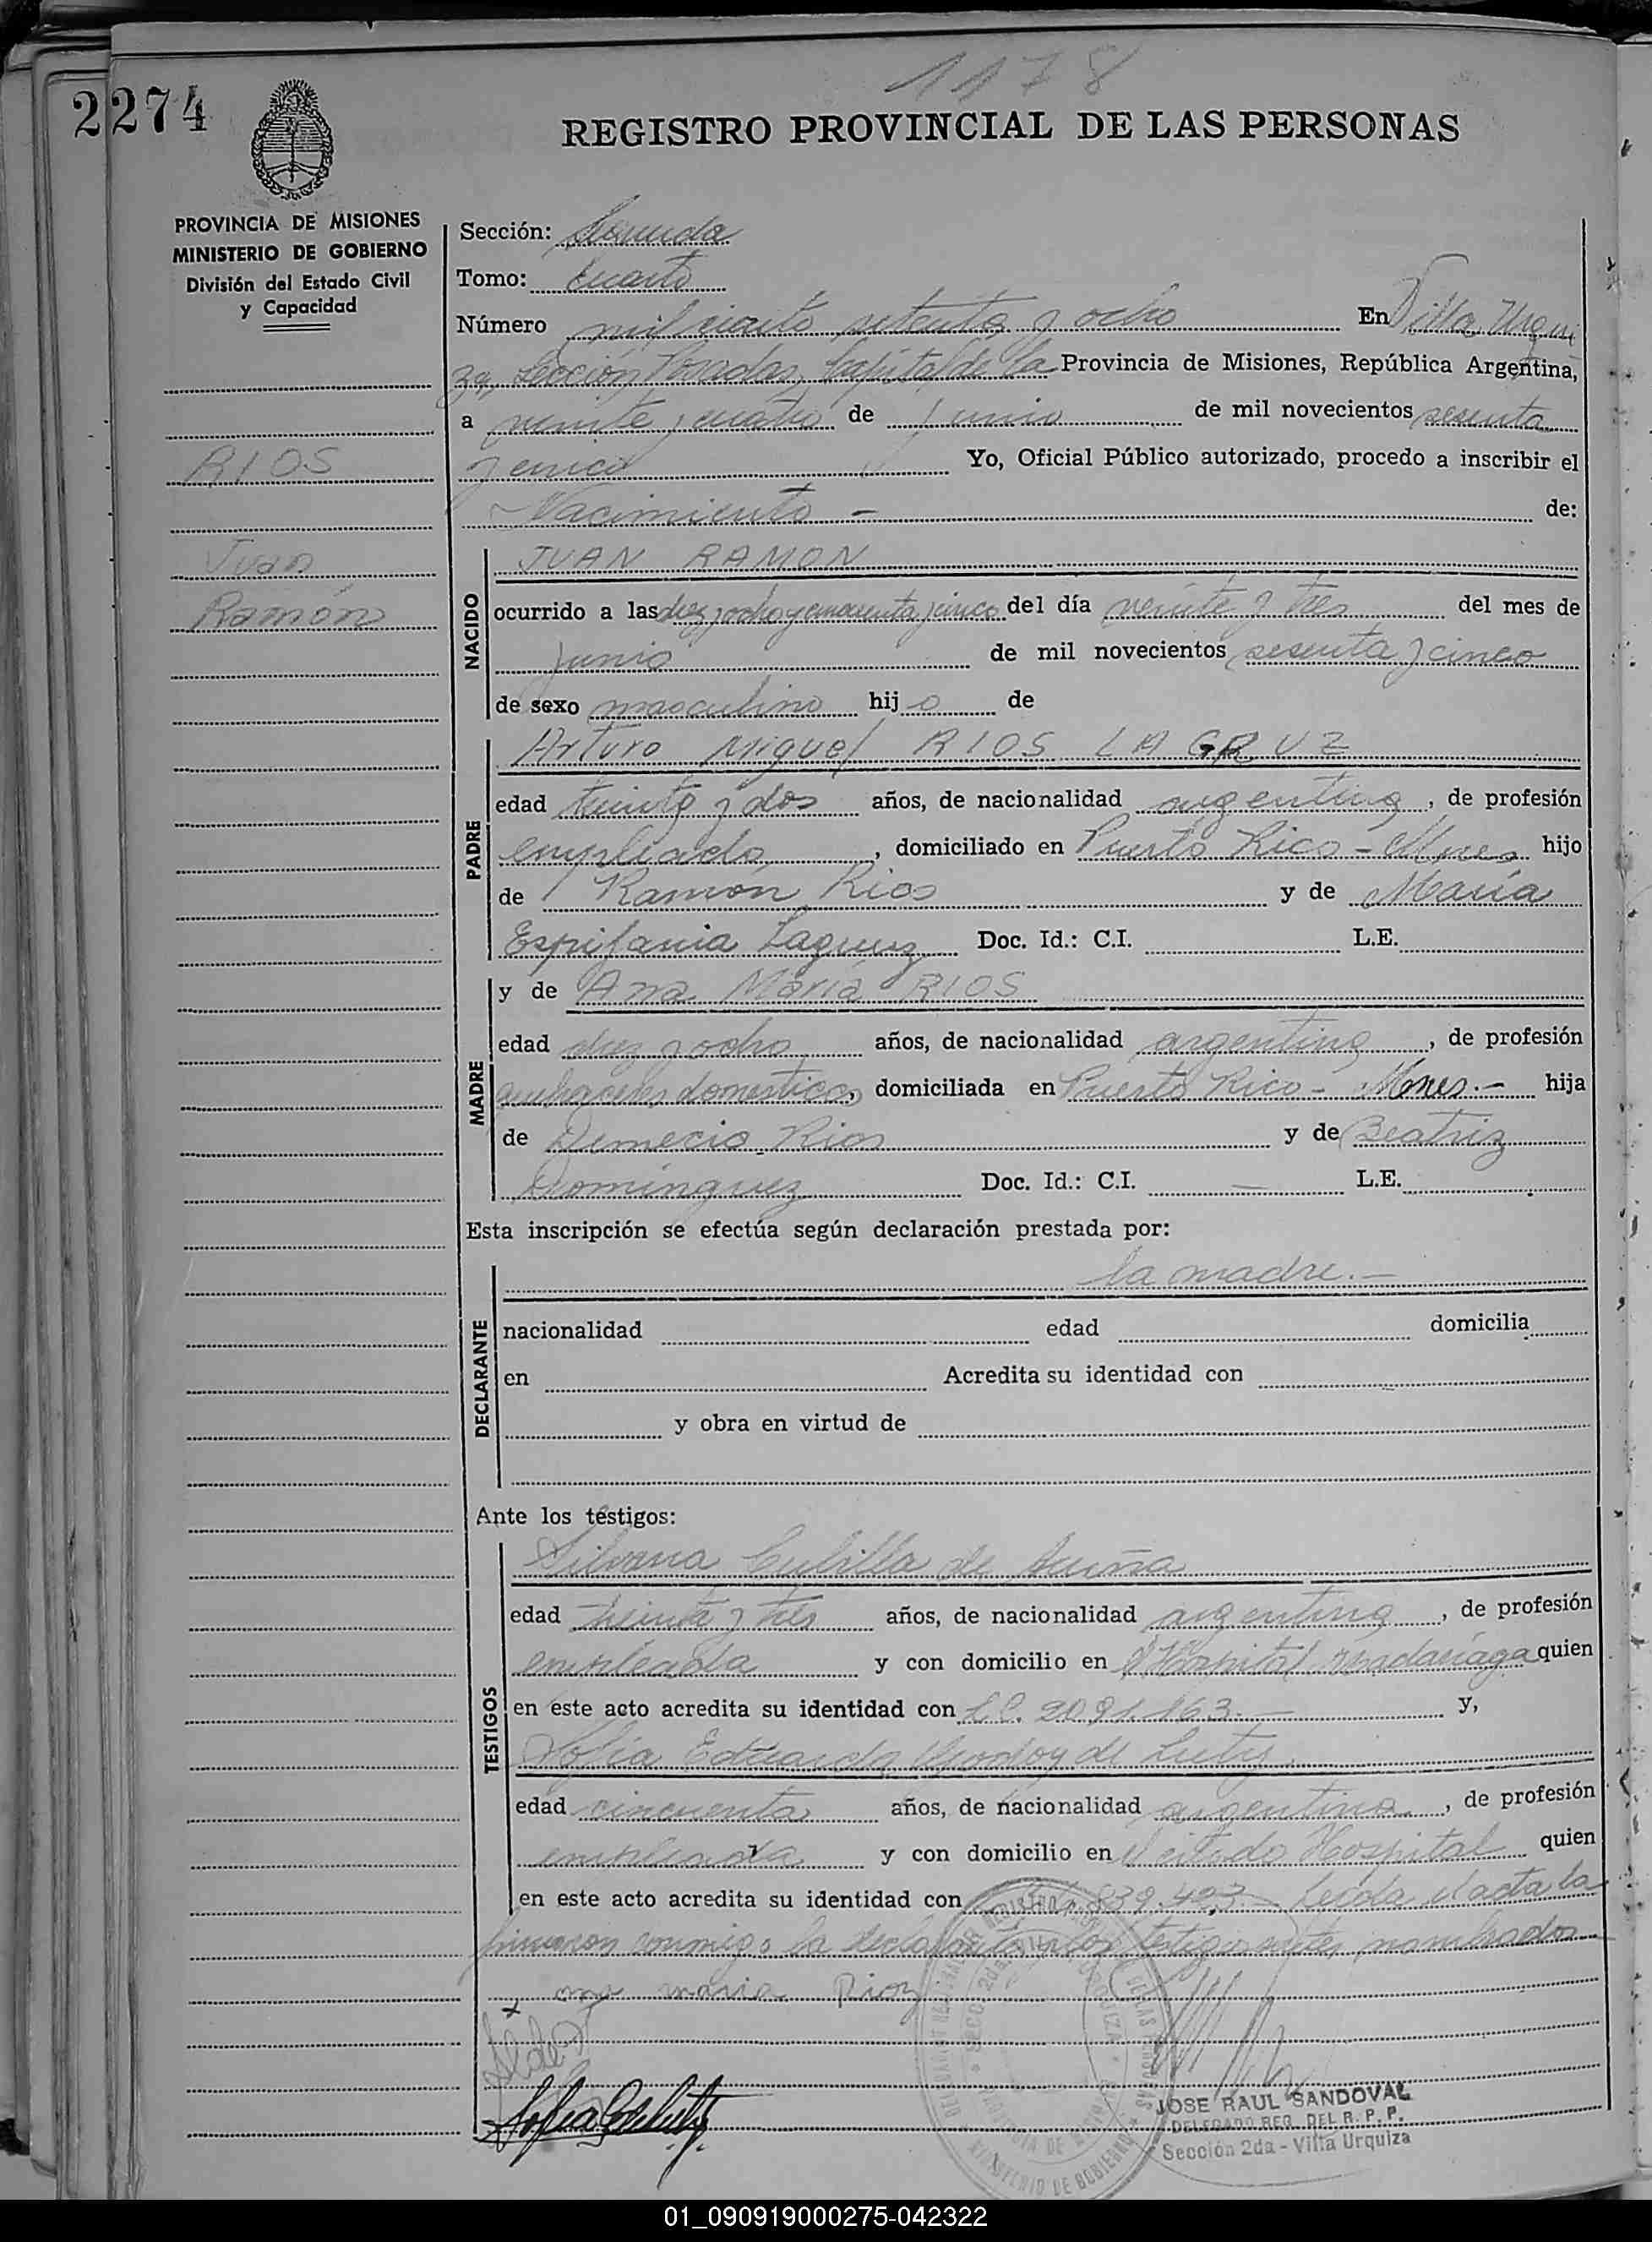 1178
2274
REGISTRO PROVINCIAL DE LAS PERSONAS
PROVINCIA DE MISIONES
MINISTERIO DE GOBIERNO
División del Estado Civil
y Capacidad
RIOS
Juan
Ramón
Sección: Segunda
Tomo: Cuarto
Número mil ciento setenta y ocho En Villa Urqui
za, Sección Posadas, Capital de la Provincia de Misiones, República Argentina,
a veinte y cuatro de Junio de mil novecientos sesenta
y cinco Yo, Oficial Público autorizado, procedo a inscribir el
Nacimiento - de:
NACIDO
JUAN RAMON
ocurrido a las diez y ocho y cincuenta y cinco del día veinte y tres del mes de
Junio de mil novecientos sesenta y cinco
de sexo masculino hijo de
PADRE
Arturo Miguel RIOS LAGRUZ
edad treinta y dos años, de nacionalidad argentina, de profesión
empleado, domiciliado en Puerto Rico - Mnes hijo
de Ramón Rios y de María
Espifania Doc. Id.: C.I. L.E.
MADRE
y de Ana María RIOS
edad diez y ocho años, de nacionalidad argentina, de profesión
quehaceres domesticos, domiciliada en Puerto Rico - Mnes.- hija
de Demecio Rios y de Beatriz
Dominguez Doc. Id.: C.I. — L.E.
Esta inscripción se efectúa según declaración prestada por:
DECLARANTE
la madre.-
nacionalidad edad domicilia
en Acredita su identidad con
y obra en virtud de
Ante los testigos:
TESTIGOS
Silvana Cubilla de
edad treinta y tres años, de nacionalidad argentina, de profesión
empleada y con domicilio en Hospital Madariaga quien
en este acto acredita su identidad con L.C. 2091.163.- y,
Sofia Eduarda Godoy de
edad cincuenta años, de nacionalidad argentina, de profesión
empleada y con domicilio en el citado Hospital quien
en este acto acredita su identidad con 839.423.- Leida el acta la
firmaron conmigo la declarante y los testigos antes nombrados
x ana maria Rios
JOSE RAUL SANDOVAL
DELEGADO REG. DEL R. P. P.
Sección 2da - Villa Urquiza
01_090919000275-042322